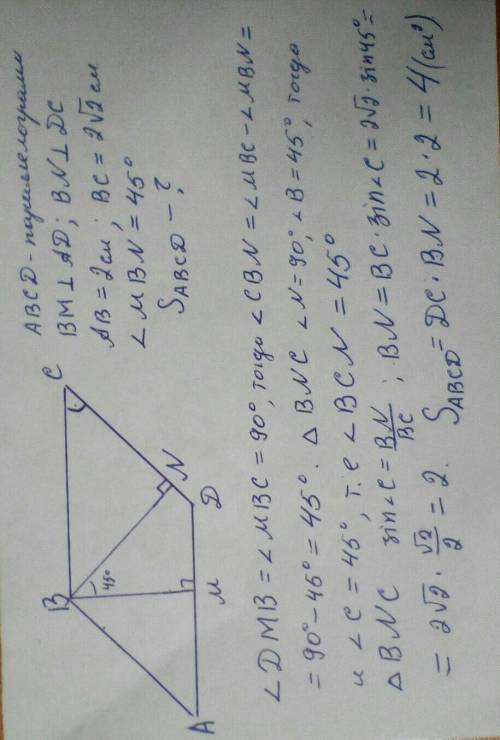 ABCD - параллелограмм
BM ⊥ AD; BN ⊥ DC
AB = 2 см; BC = 2√2 см
∠MBN = 45°
S_ABCD - ?
B
C
45°
N
A
M
D
∠DMB = ∠MBC = 90°, тогда ∠CBN = ∠MBC - ∠MBN =
= 90° - 45° = 45°. △BNC ∠N = 90°, ∠B = 45°, тогда
и ∠C = 45°, т.е ∠BCN = 45°
△BNC sin∠C = BN/BC ; BN = BC · sin∠C = 2√2 · sin45° =
= 2√2 · √2/2 = 2. S_ABCD = DC · BN = 2 · 2 = 4 (см²)